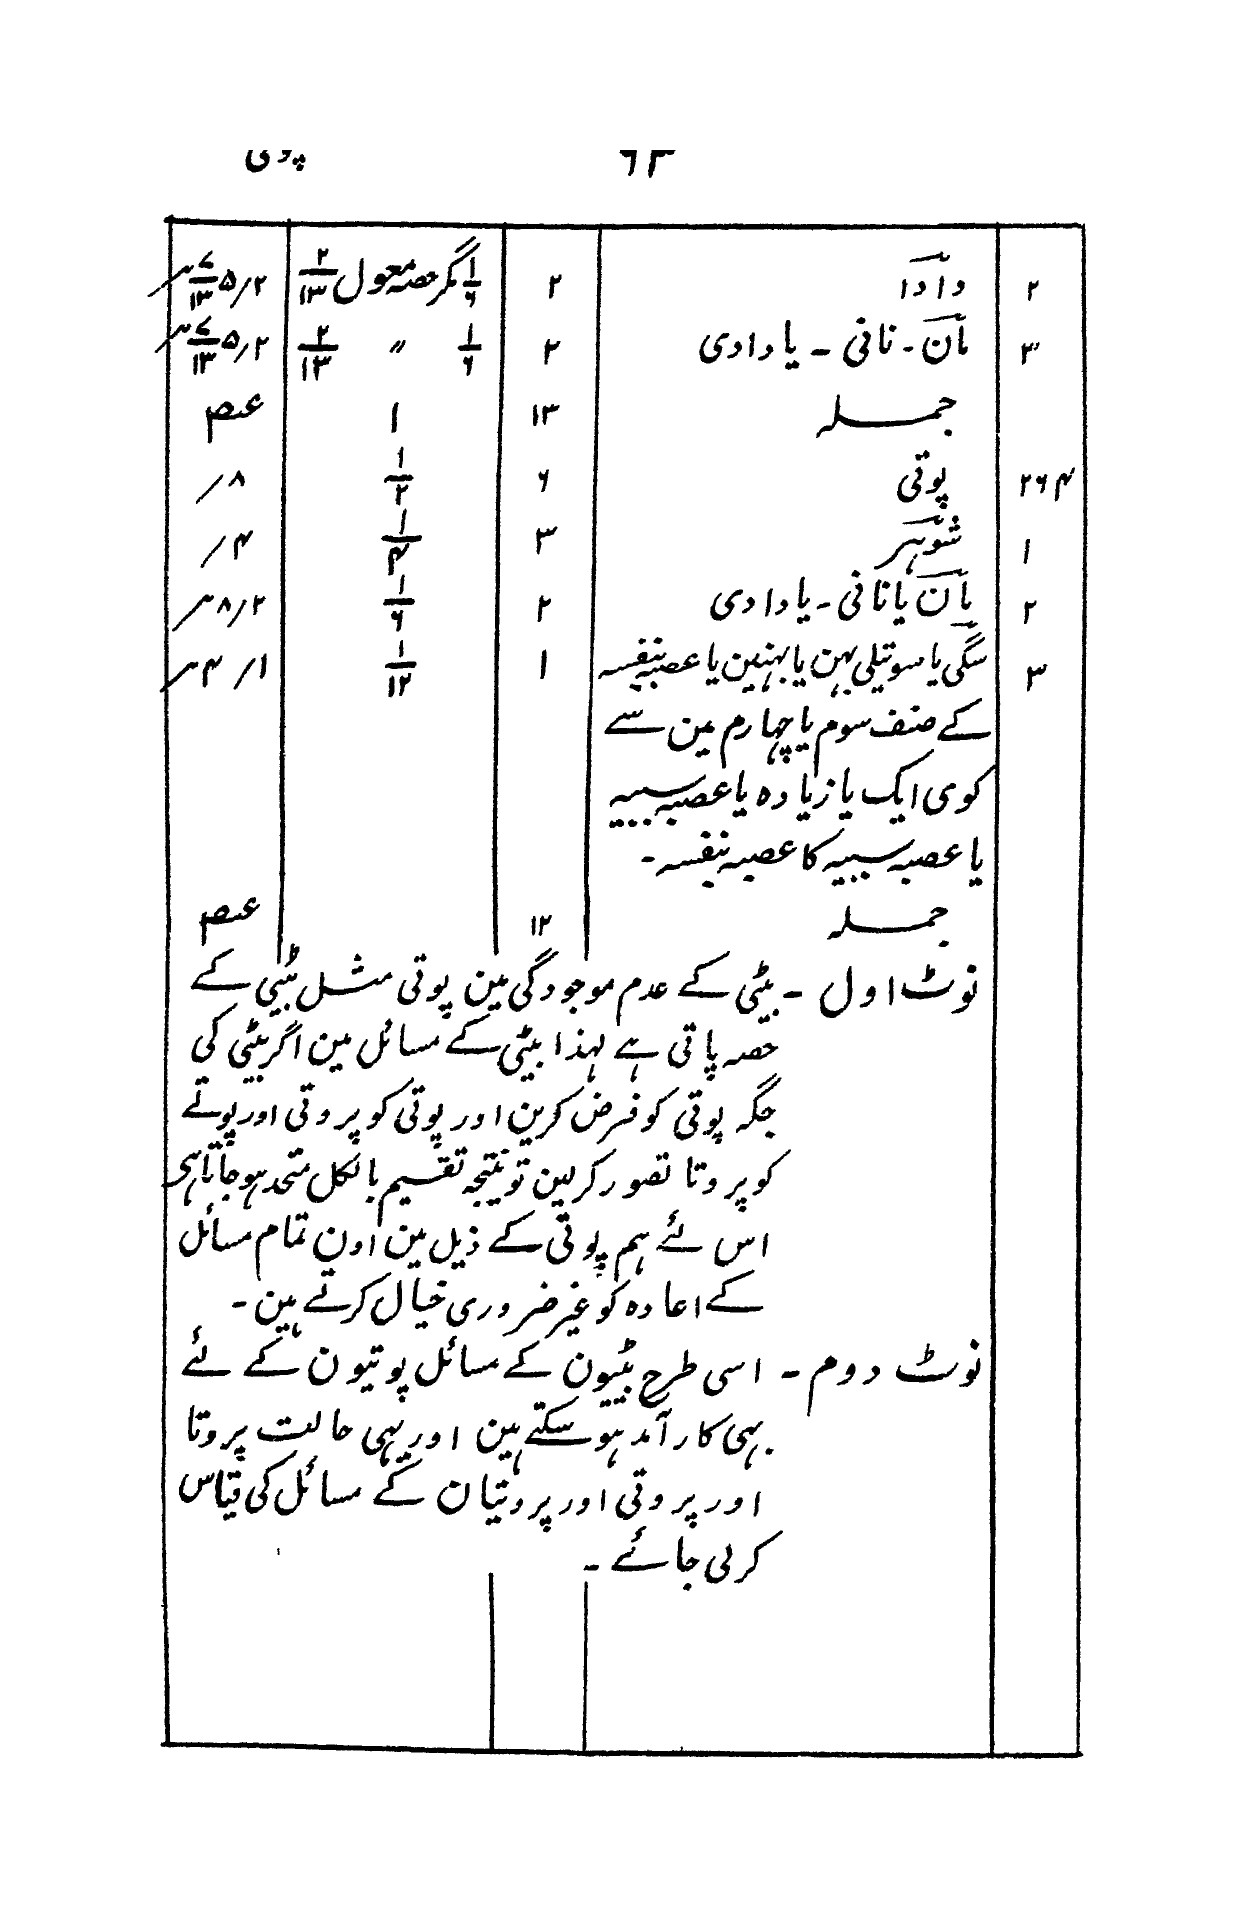 ۶۳ پوتی
۲ دادا ۲ ۱/۶ مگر حصہ معول ۲/۱۳ ۲/۵ ۷/۱۳
۳ مان - نانی - یا دادی ۲ ۱/۶ " ۲/۱۳ ۲/۵ ۷/۱۳
جملہ ۱۳ ۱
۲۶۴ پوتی ۶ ۱/۲ ۸/
۱ شوہر ۳ ۱/۴ ۴/
۲ مان یا نانی - یا دادی ۲ ۱/۶ ۲/۸
۳ سگی یا سوتیلی بہن یا بہنین یا عصبہ بنفسہ ۱ ۱/۱۲ ۱/۴
کے صنف سوم یا چہارم مین سے
کوی ایک یا زیادہ یا عصبہ سببیہ
یا عصبہ سببیہ کا عصبہ بنفسہ -
جملہ ۱۲
نوٹ اول - بیٹی کے عدم موجودگی مین پوتی مثل بیٹی کے
حصہ پاتی ہے لہذا بیٹی کے مسائل مین اگر بیٹی کی
جگہ پوتی کو فرض کرین اور پوتی کو پروتی اور پوتے
کو پروتا تصور کرلین تو نتیجہ تقسیم بالکل متحد ہو جاتا ہی
اس لئے ہم پوتی کے ذیل مین اون تمام مسائل
کے اعادہ کو غیر ضروری خیال کرتے ہین -
نوٹ دوم - اسی طرح بیٹیون کے مسائل پوتیون کے لئے
بہی کارآمد ہو سکتے ہین اور یہی حالت پروتا
اور پروتی اور پروتیان کے مسائل کی قیاس
کرلی جائے -